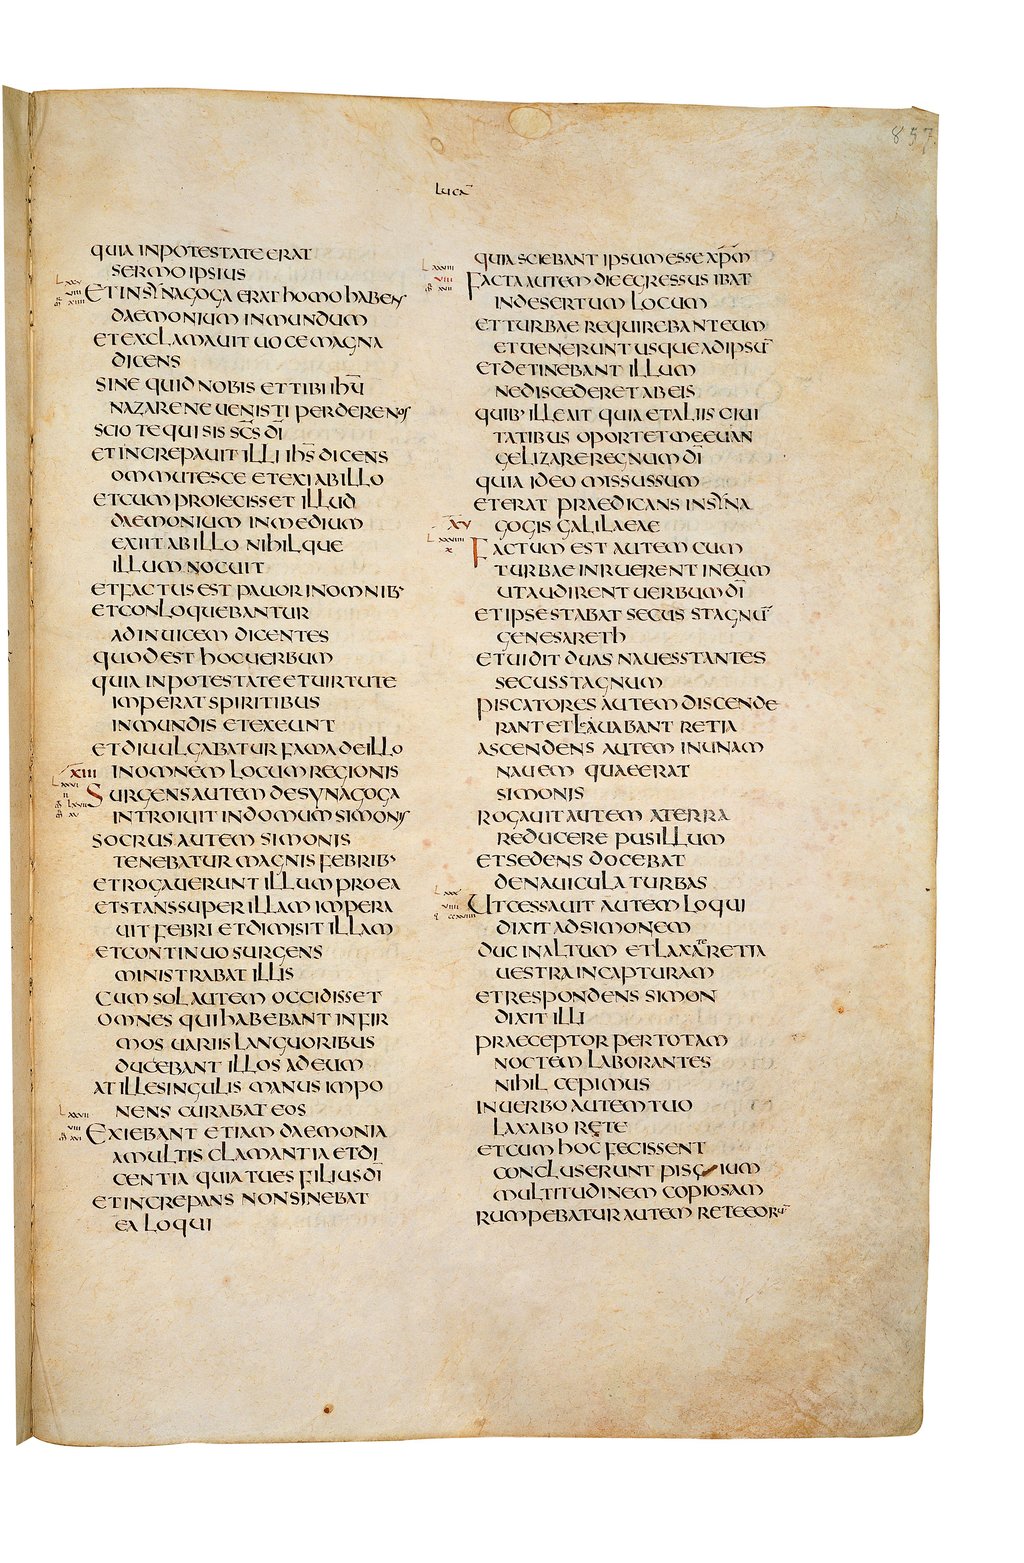 857
LUCAN
QUIA INPOTESTATE ERAT
SERMO IPSIUS
LXXV
VIII
ET INSYNAGOGA ERAT HOMO HABENS
DAEMONIUM INMUNDUM
ET EXCLAMAUIT UOCE MAGNA
DICENS
SINE QUID NOBIS ET TIBI IHU̅
NAZARENE UENISTI PERDERE NOS
SCIO TE QUI SIS SC̅S DI̅
ET INCREPAUIT ILLI IHS̅ DICENS
OMMUTESCE ET EXI AB ILLO
ET CUM PROIECISSET ILLUD
DAEMONIUM IN MEDIUM
EXIIT AB ILLO NIHILQUE
ILLUM NOCUIT
ET FACTUS EST PAUOR IN OMNIB·
ET CONLOQUEBANTUR
ADINUICEM DICENTES
QUOD EST HOC UERBUM
QUIA IN POTESTATE ET UIRTUTE
IMPERAT SPIRITIBUS
INMUNDIS ET EXEUNT
ET DIUULGABATUR FAMA DE ILLO
XIII IN OMNEM LOCUM REGIONIS
LXXVI
II
SURGENS AUTEM DE SYNAGOGA
INTROIUIT IN DOMUM SIMONIS
SOCRUS AUTEM SIMONIS
TENEBATUR MAGNIS FEBRIB·
ET ROGAUERUNT ILLUM PRO EA
ET STANS SUPER ILLAM IMPERA
UIT FEBRI ET DIMISIT ILLAM
ET CONTINUO SURGENS
MINISTRABAT ILLIS
CUM SOL AUTEM OCCIDISSET
OMNES QUI HABEBANT INFIR
MOS UARIIS LANGUORIBUS
DUCEBANT ILLOS AD EUM
AT ILLE SINGULIS MANUS IMPO
LXXVII NENS CURABAT EOS
VIII
EXIEBANT ETIAM DAEMONIA
A MULTIS CLAMANTIA ET DI
CENTIA QUIA TU ES FILIUS DI̅
ET INCREPANS NON SINEBAT
EA LOQUI
QUIA SCIEBANT IPSUM ESSE XP̅M̅
LXXVIII
VIII
FACTA AUTEM DIE EGRESSUS IBAT
IN DESERTUM LOCUM
ET TURBAE REQUIREBANT EUM
ET UENERUNT USQUE AD IPSU̅
ET DETINEBANT ILLUM
NE DISCEDERET AB EIS
QUIB· ILLE AIT QUIA ET ALIIS CIUI
TATIBUS OPORTET ME EUAN
GELIZARE REGNUM DI̅
QUIA IDEO MISSUS SUM
ET ERAT PRAEDICANS IN SYNA
XV GOGIS GALILAEAE
LXXVIIII
X
FACTUM EST AUTEM CUM
TURBAE INRUERENT IN EUM
UT AUDIRENT UERBUM DI̅
ET IPSE STABAT SECUS STAGNU̅
GENESARETH
ET UIDIT DUAS NAUES STANTES
SECUS STAGNUM
PISCATORES AUTEM DISCENDE
RANT ET LAUABANT RETIA
ASCENDENS AUTEM IN UNAM
NAUEM QUAE ERAT
SIMONIS
ROGAUIT AUTEM A TERRA
REDUCERE PUSILLUM
ET SEDENS DOCEBAT
DE NAUICULA TURBAS
LXXX
VIIII
UT CESSAUIT AUTEM LOQUI
DIXIT AD SIMONEM
DUC IN ALTUM ET LAXATE RETIA
UESTRA IN CAPTURAM
ET RESPONDENS SIMON
DIXIT ILLI
PRAECEPTOR PER TOTAM
NOCTEM LABORANTES
NIHIL CEPIMUS
IN UERBO AUTEM TUO
LAXABO RETE
ET CUM HOC FECISSENT
CONCLUSERUNT PISCIUM
MULTITUDINEM COPIOSAM
RUMPEBATUR AUTEM RETE EORU̅